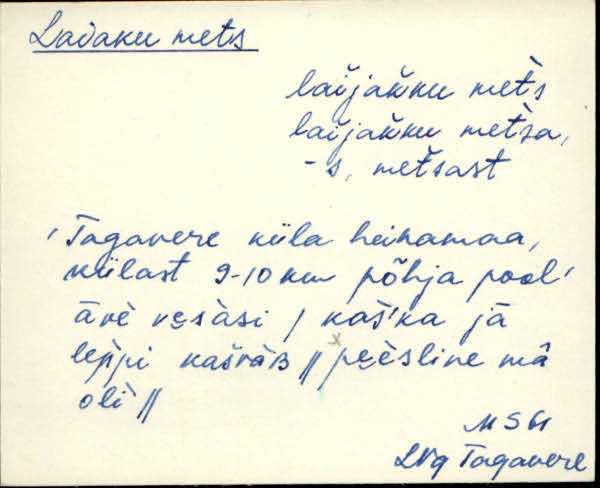 Laiaku mets
laijakku metš
laijakku metša,
-s, metšast
'Tagavere küla heinamaa,
külast 9-10 km põhja pool'
ävè vesàsi / kaš'ka jä
leppi kašväB // peèsline mā
oli //
MS61
LNg Tagavere